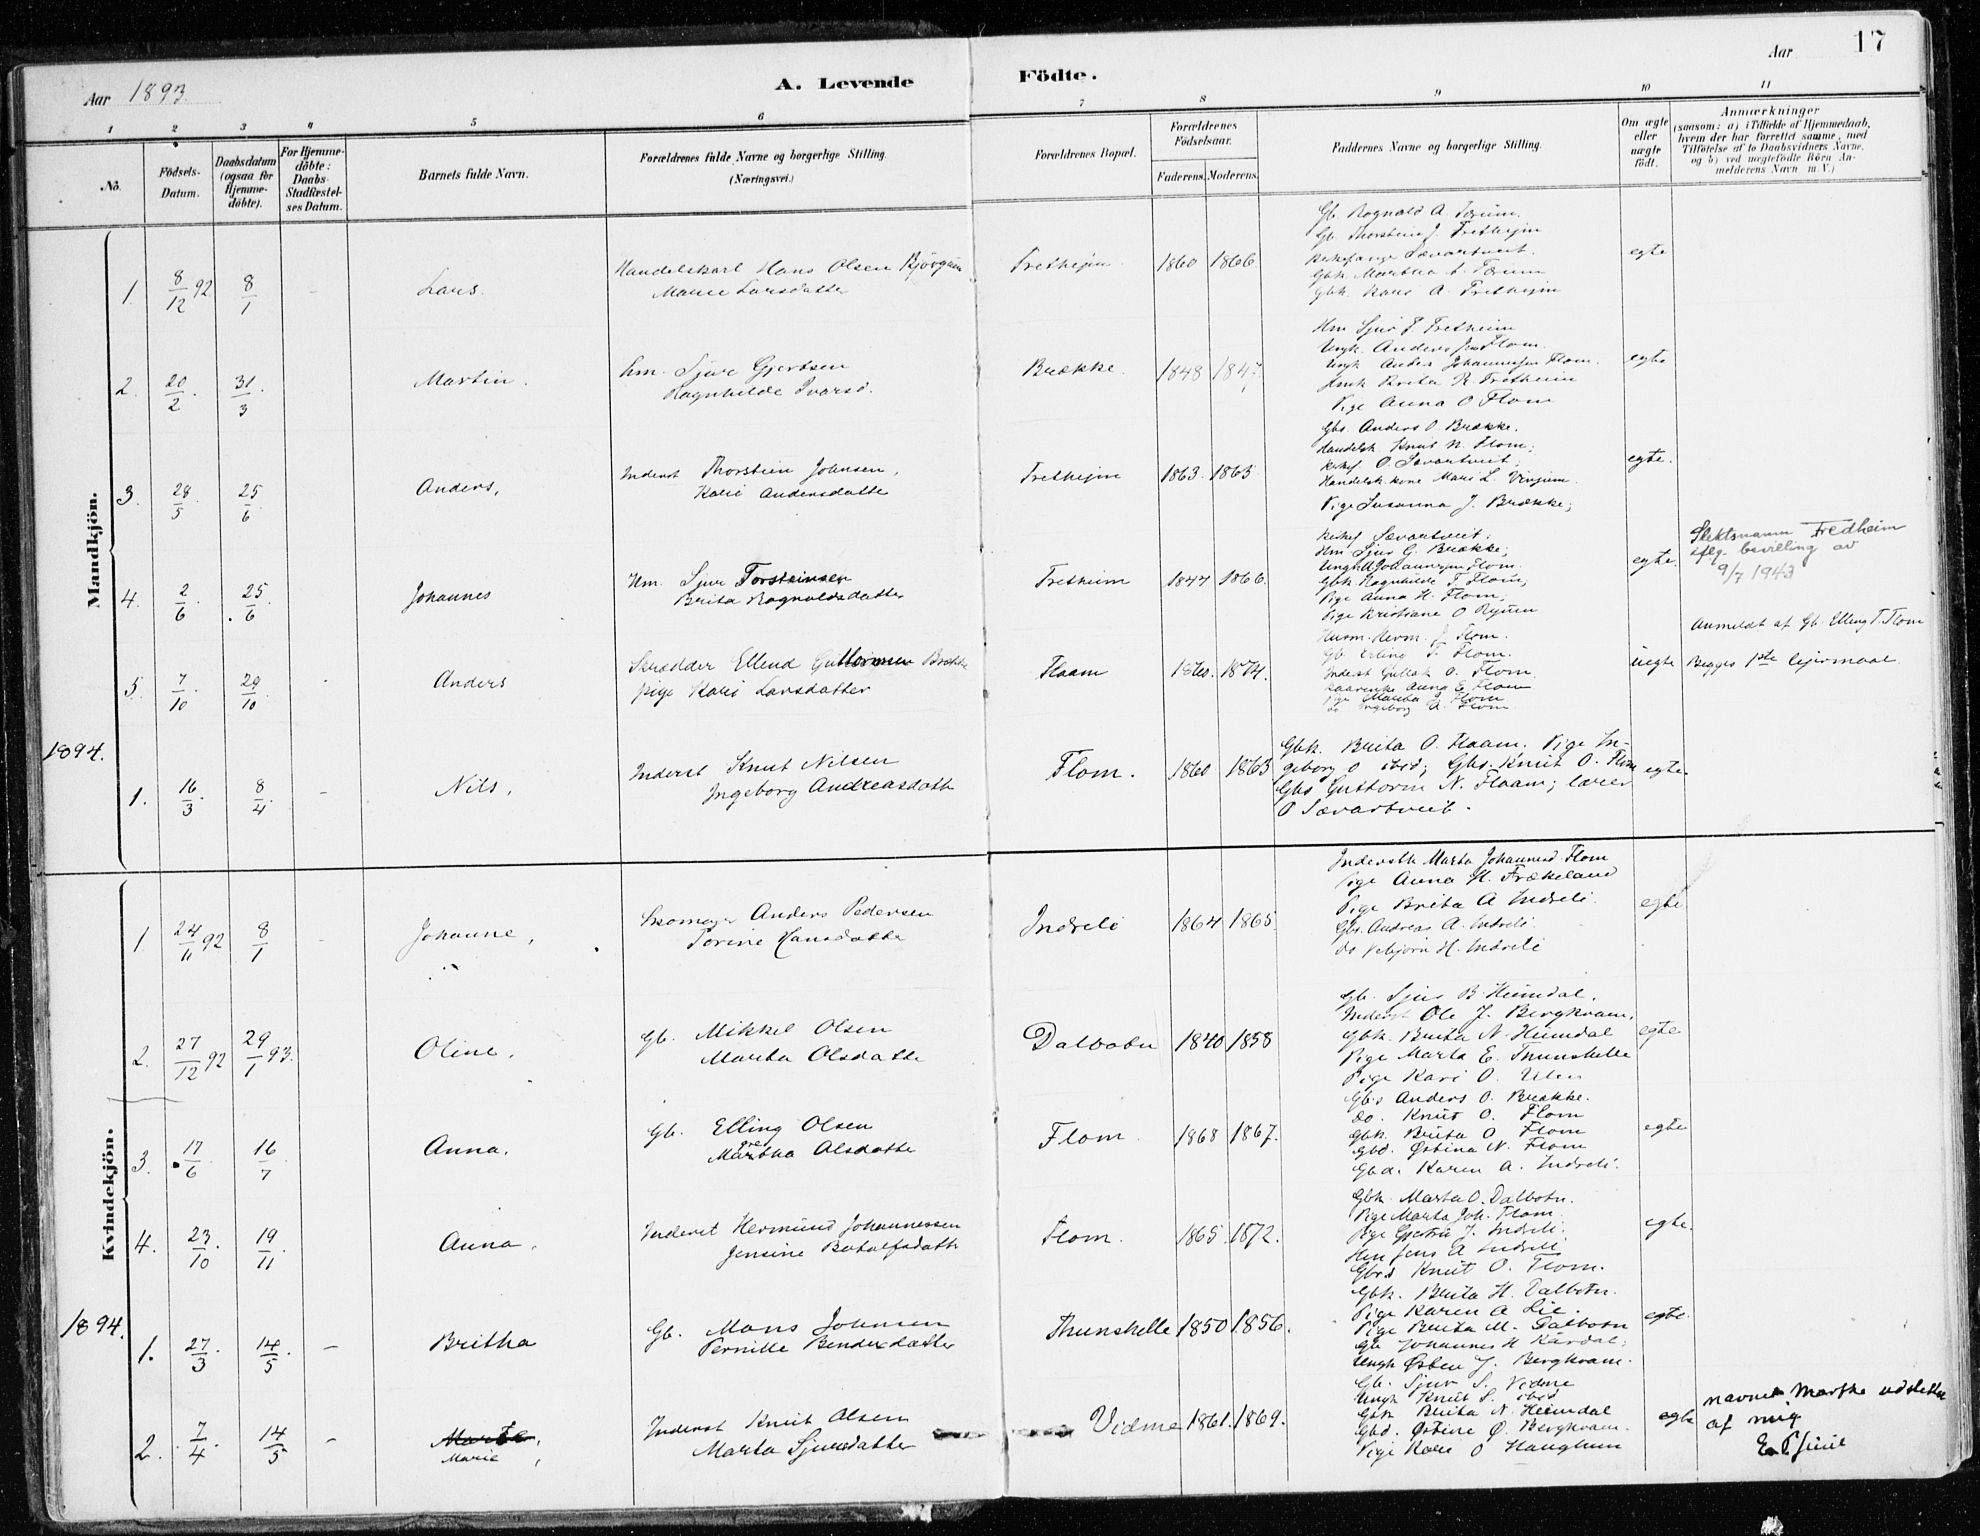 17
Aar 1893.
A. Levende Födte.
Aar
1 2 3 4 5 6 7 8 9 10 11
No.
Födsels-Datum.
Daabsdatum (ogsaa for Hjemme-döbte).
For Hjemme-döbte: Daabs-Stadfæstel-ses Datum.
Barnets fulde Navn.
Forældrenes fulde Navne og borgerlige Stilling.
(Næringsvei.)
Forældrenes Bopæl.
Forældrenes Födselsaar.
Faderens. Moderens.
Faddernes Navne og borgerlige Stilling.
Om ægte eller uægte födt.
Anmærkninger
(saasom: a) i Tilfælde af Hjemmedaab,
hvem der har forrettet samme, med
Tilföielse af to Daabsvidners Navne,
og b) ved uægtefödte Börn An-
melderens Navn m.V.)
Mandkjön.
1. 8/12 92 8/1 - Lars.
Handelskarl Hans Olsen
Marie Larsdatter
Fretheim 1860 1866.
Gb. Rognald A.
Gb. Thorstein J. Fretheim
Kirkesanger Sævartveit.
Gbk. Martha
Gbk. Kari A. Fretheim
egte
2. 20/2. 31/3. Martin.
Hm. Sjur Gjertsen
Ragnhilde Ivarsd.
Brække. 1848 1847.
Hm Sjur T. Fretheim
Ungk. Anders Flom.
Ungk Anders Johannesen Flom.
Brita R. Fretheim
Pige Anna O Flom
egte
3. 28/5 25/6 Anders,
Inderst Thorstein Johnsen,
Kari Andersdatter
Fretheim 1863. 1863.
Gbs. Anders O Brække.
Handelsk Knut N. Flom;
Kirkes O. Sævartveit,
Handelsk.kone Mari L. Vinjum.
Pige Susanna J. Brække;
egte.
4. 2/6 25/6 Johannes
Hm. Sjur Torsteinsen
Brita Rognaldsdatter
Fretheim 1847 1866.
Kirkes Sævartveit.
Hm Sjur G. Brække;
Ungk A Johannesen Flom.
Gbk. Ragnhilde T. Flom;
Pige Anna H. Flom;
Pige Kristiane O
egte.
Slektsnavn Fredheim
iflg. bevilling av
9/7 1943
5. 7/10 29/10 Anders
Skrædder Ellend Guttormsen Brække
pige Kari Larsdatter
Flaam 1860. 1874.
Husm. Herm. J Flom.
Gb. Elling T. Flom.
Inderst Gullak O. Flom
Kaarenke Anna E. Flom
Pige Martha J. Flom
do Ingeborg A. Flom
uegte
Anmeldt af Gb. Elling T. Flom
Begges 1ste leiermaal.
1894.
1. 16/3. 8/4. - Nils,
Inderst Knut Nilsen
Ingeborg Andreasdatter
Flom. 1860 1863
Gbk. Brita O. Flaam. Pige In-
geborg O ibid; Gbs. Knut O. Flom
Gbs Guttorm N. Flaam; lærer
O Sævartveit.
egte.
Kvindekjön.
1 24/11 92 8/1 - Johanne,
Skomager Anders Pedersen
Torine Hansdatter
Indreli 1864 1865.
Inderstk Marta Johannesd Flom
Pige Anna H. Frækeland
Pige Brita A Indreli.
Gbs. Andreas A. Indreli.
do Vebjørn H. Indreli
egte
2. 27/12 92 29/1 93. Oline.
Gb. Mikkel Olsen
Marta Olsdatter
Dalbotn 1840 1858
Gb. Sjur B Heimdal,
Inderst Ole J. Bergkvam.
Gbk. Brita N. Heimdal
Pige Marta E. Thunshelle
Pige Kari O. Uten
egte
3. 17/6 16/7 Anna.
Gb. Elling Olsen
Martha Olsdatter
Flom. 1868 1867.
Gbs Anders O. Brække.
do. Knut O. Flom
Gbk. Brita O Flom
Gbd. Østina N. Flom
Gbd. Karen A. Indreli.
egte
4. 23/10. 19/11 Anna,
Inderst Hermund Johannessen
Jensine Botolfsdatter
Flom. 1865. 1872.
Gbk. Marta O. Dalbotn.
Pige Marta Joh. Flom.
Pige Gjertru J. Indreli.
Hm Jens A Indreli
Gbs Knut O. Flom.
egte.
1894.
1. 27/3. 14/5. - Britha
Gb. Mons Johnsen
Pernille Bendixdatter
Thunshelle 1850 1856.
Gbk. Brita H. Dalbotn.
Pige Karen A Lie.
Pige Brita M. Dalbotn
Gb Johannes H Kårdal;
Ungk Østen J. Bergkvam.
egte.
2. 7/4 14/5 - Marthe,
Marie,
Inderst Knut Olsen
Marta Sjursdatter
Vidme 1861. 1869.
Gb. Sjur S. Vidme
Ungk Knut S. ibid
Gbk Brita N. Heimdal
Gbd. Østine Ø. Bergkvam.
Pige Kari O Haughum
egte
navnet Marthe udslettet
af mig
E. Juul